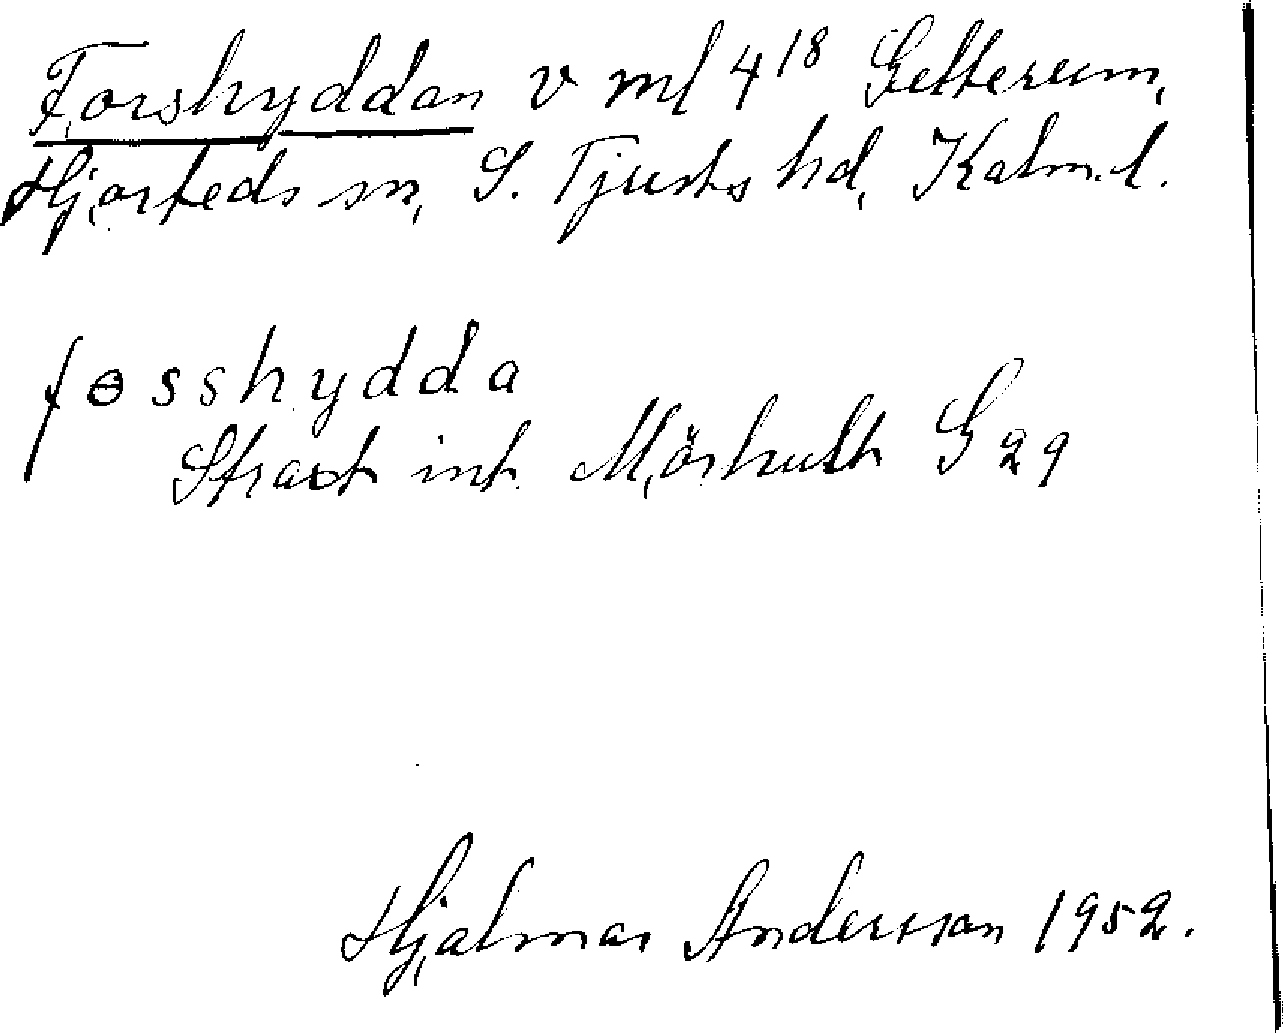 Forshyddan v mf 4¹⁸ Getterum,
Hjorteds sn, S. Tjusts hd, Kalm.l.
fɵsshydda
Strax int Mörhult G 29
Hjalmar Andersson 1952.